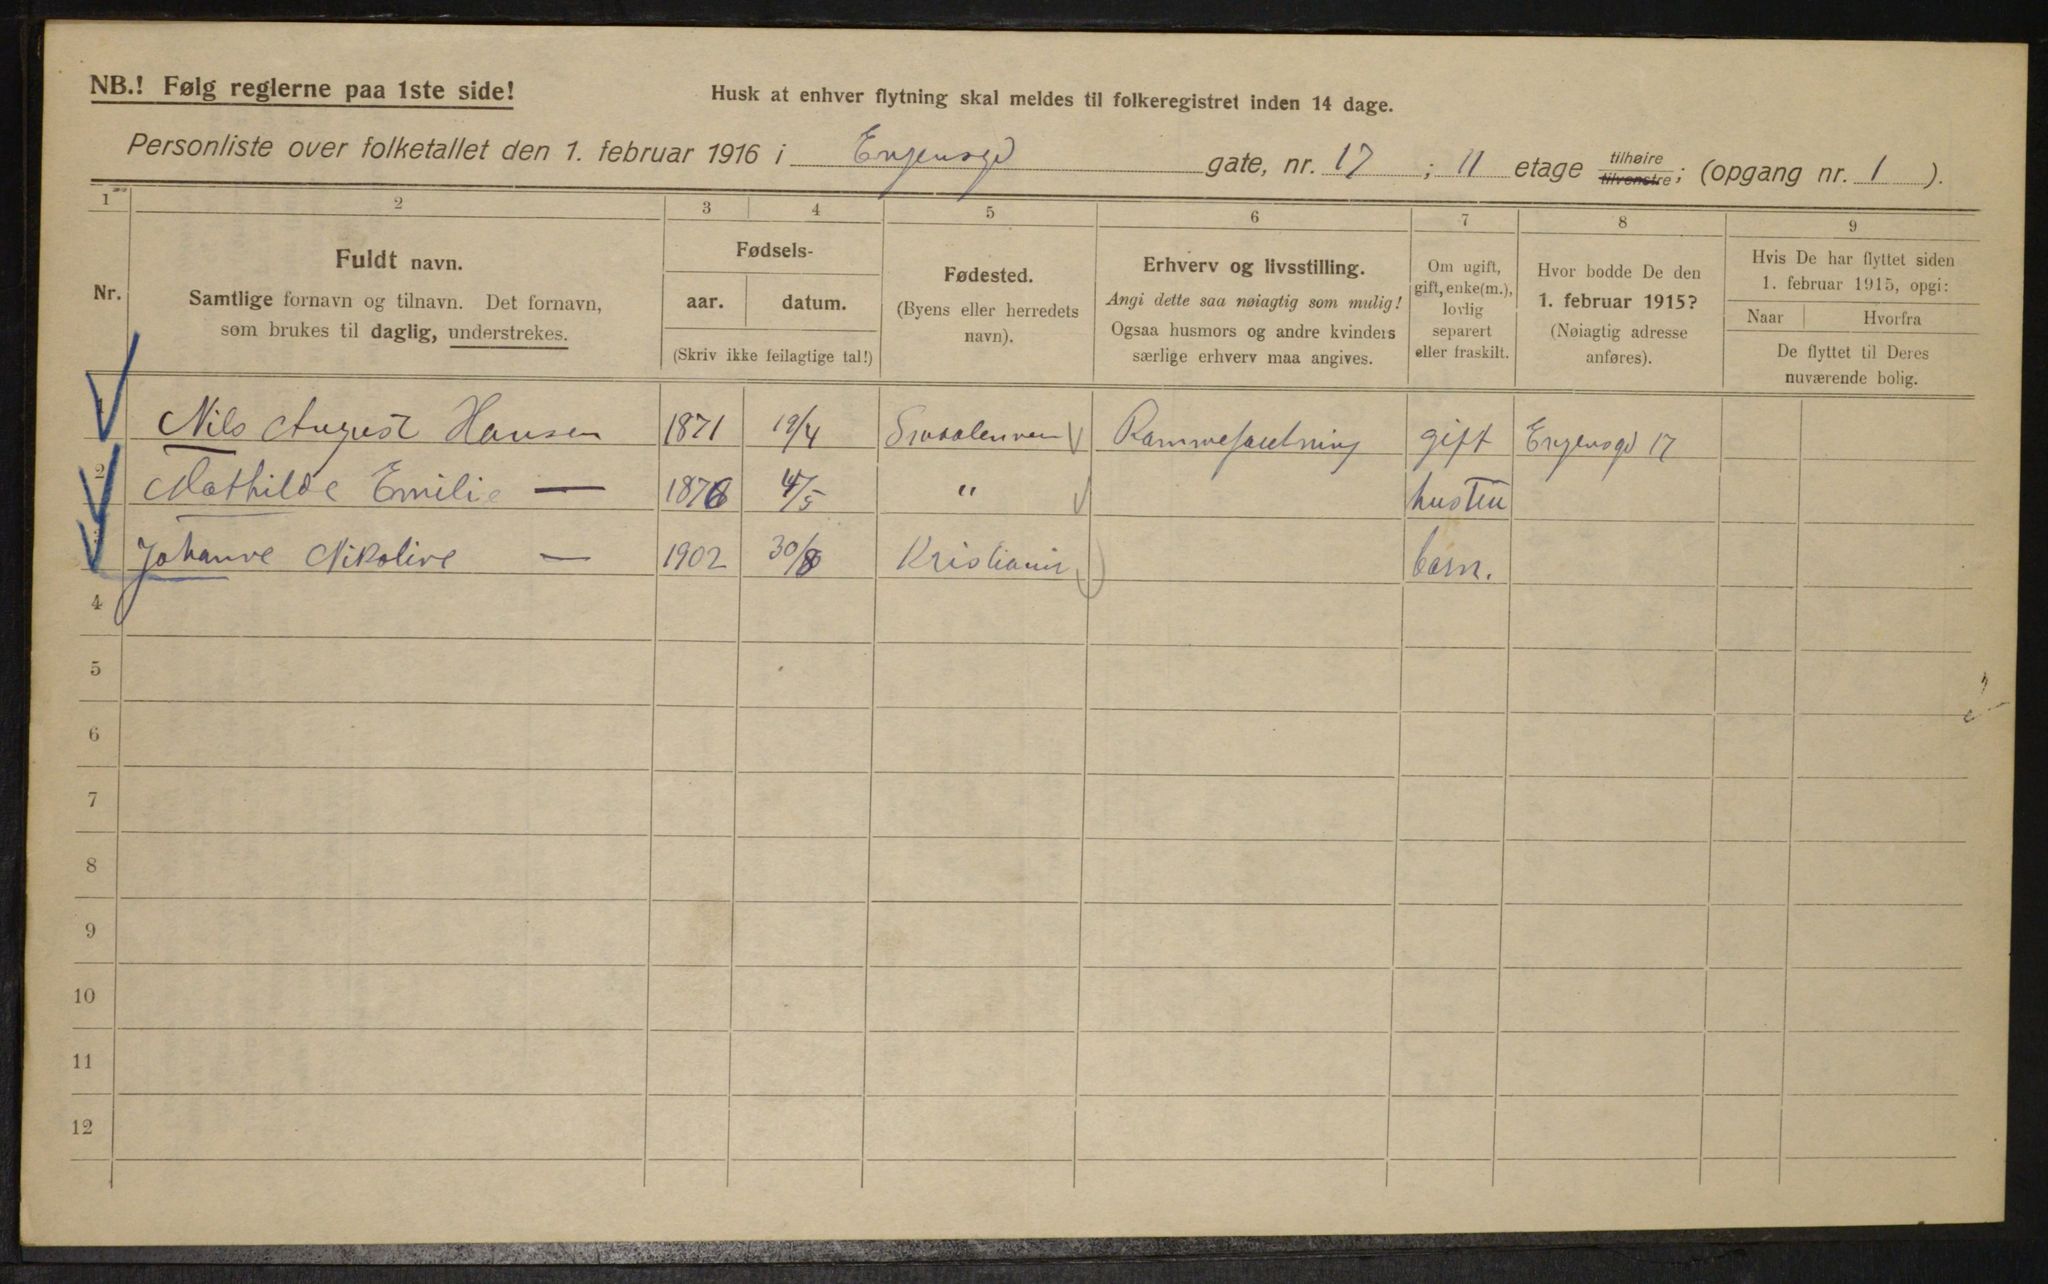 NB.! Følg reglerne paa 1ste side!
Husk at enhver flytning skal meldes til folkeregistret inden 14 dage.
Personliste over folketallet den 1. februar 1916 i Engensgd gate, nr. 17 ; 11 etage tilhøire tilvenstre; (opgang nr. 1 ).
1 2 3 4 5 6 7 8 9
Nr.
Fuldt navn.
Samtlige fornavn og tilnavn. Det fornavn,
som brukes til daglig, understrekes.
Fødsels-
aar. datum.
(Skriv ikke feilagtige tal!)
Fødested.
(Byens eller herredets
navn).
Erhverv og livsstilling.
Angi dette saa nøiagtig som mulig!
Ogsaa husmors og andre kvinders
særlige erhverv maa angives.
Om ugift,
gift, enke(m.),
lovlig
separert
eller fraskilt.
Hvor bodde De den
1. februar 1915?
(Nøiagtig adresse
anføres).
Hvis De har flyttet siden
1. februar 1915, opgi:
Naar Hvorfra
De flyttet til Deres
nuværende bolig.
1 Nils August Hansen 1871 19/4 gift Engensgd 17
2 Mathilde Emilie — 1876 4/5 " hustru
3 Johanne Nikoline — 1902 30/8 Kristiania barn.
4
5
6
7
8
9
10
11
12